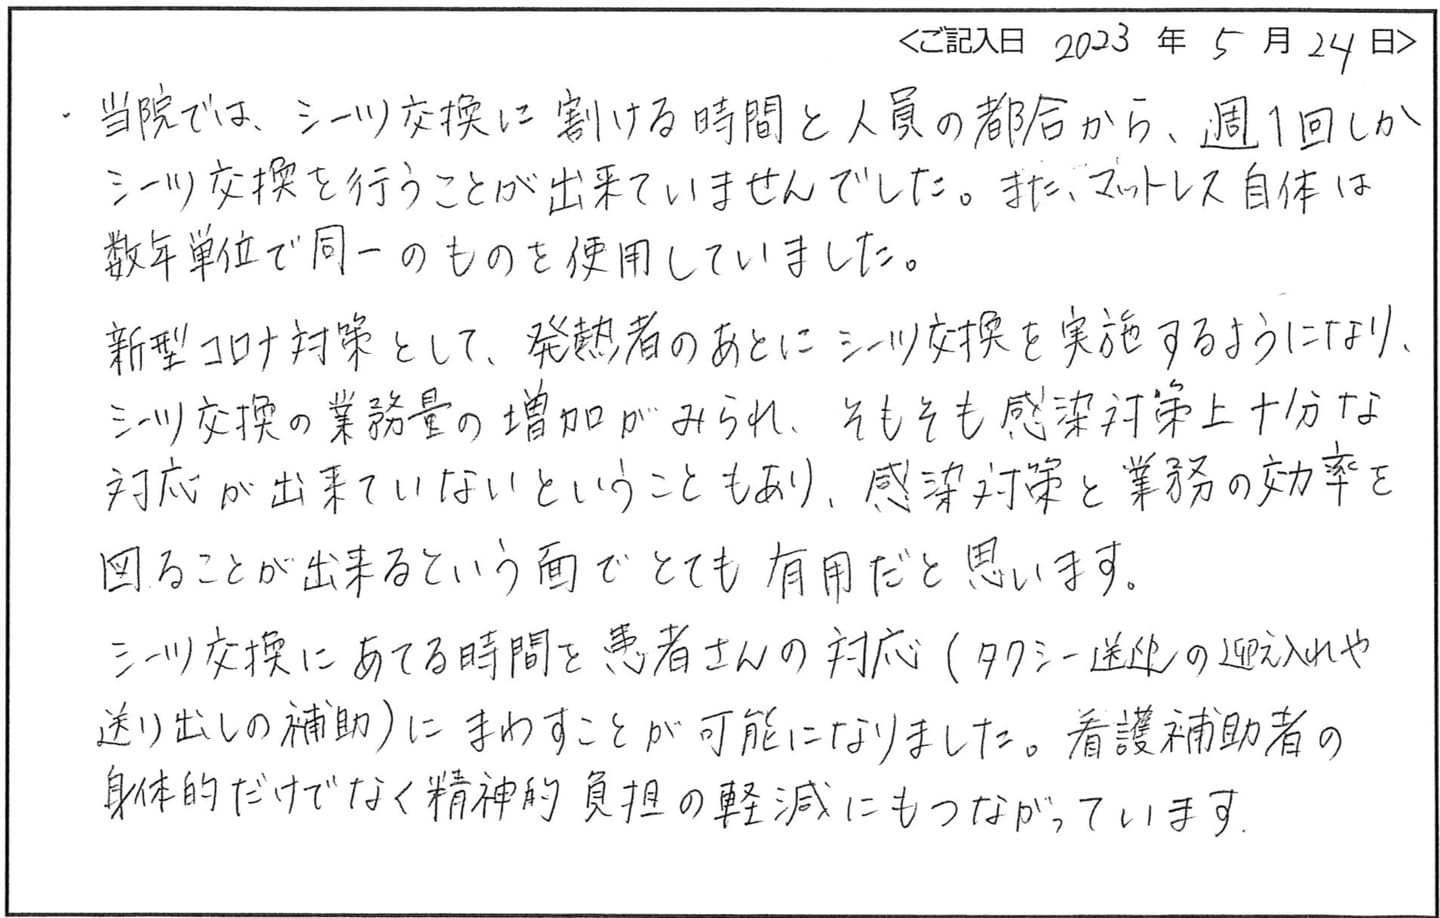 <ご記入日 2023 年 5 月 24 日>
・当院では、シーツ交換に割ける時間と人員の都合から、週1回しか
シーツ交換を行うことが出来ていませんでした。また、マットレス自体は
数年単位で同一のものを使用していました。
新型コロナ対策として、発熱者のあとにシーツ交換を実施するようになり、
シーツ交換の業務量の増加がみられ、そもそも感染対策上十分な
対応が出来ていないということもあり、感染対策と業務の効率を
図ることが出来るという面でとても有用だと思います。
シーツ交換にあてる時間を患者さんの対応(タクシー送迎の迎え入れや
送り出しの補助)にまわすことが可能になりました。看護補助者の
身体的だけでなく精神的負担の軽減にもつながっています.